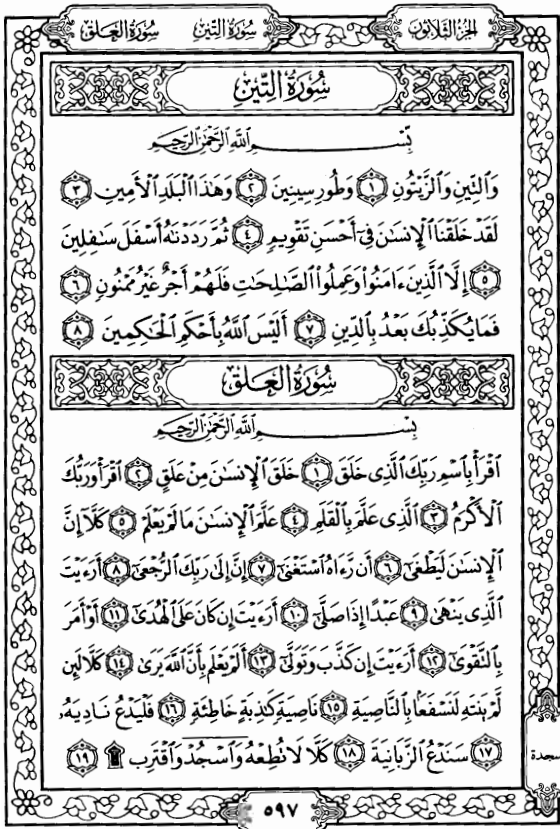 الجزء الثلاثون سورة التين سورة العلق
سُورَةُ التِّينِ
بِسْمِ اللَّهِ الرَّحْمَٰنِ الرَّحِيمِ
وَالتِّينِ وَالزَّيْتُونِ ١ وَطُورِ سِينِينَ ٢ وَهَٰذَا الْبَلَدِ الْأَمِينِ ٣
لَقَدْ خَلَقْنَا الْإِنسَٰنَ فِي أَحْسَنِ تَقْوِيمٍ ٤ ثُمَّ رَدَدْنَٰهُ أَسْفَلَ سَٰفِلِينَ
٥ إِلَّا الَّذِينَ ءَامَنُوا وَعَمِلُوا الصَّٰلِحَٰتِ فَلَهُمْ أَجْرٌ غَيْرُ مَمْنُونٍ ٦
فَمَا يُكَذِّبُكَ بَعْدُ بِالدِّينِ ٧ أَلَيْسَ اللَّهُ بِأَحْكَمِ الْحَٰكِمِينَ ٨
سُورَةُ الْعَلَقِ
بِسْمِ اللَّهِ الرَّحْمَٰنِ الرَّحِيمِ
اقْرَأْ بِاسْمِ رَبِّكَ الَّذِي خَلَقَ ١ خَلَقَ الْإِنسَٰنَ مِنْ عَلَقٍ ٢ اقْرَأْ وَرَبُّكَ
الْأَكْرَمُ ٣ الَّذِي عَلَّمَ بِالْقَلَمِ ٤ عَلَّمَ الْإِنسَٰنَ مَا لَمْ يَعْلَمْ ٥ كَلَّا إِنَّ
الْإِنسَٰنَ لَيَطْغَىٰ ٦ أَن رَّءَاهُ اسْتَغْنَىٰ ٧ إِنَّ إِلَىٰ رَبِّكَ الرُّجْعَىٰ ٨ أَرَءَيْتَ
الَّذِي يَنْهَىٰ ٩ عَبْدًا إِذَا صَلَّىٰ ١٠ أَرَءَيْتَ إِن كَانَ عَلَى الْهُدَىٰ ١١ أَوْ أَمَرَ
بِالتَّقْوَىٰ ١٢ أَرَءَيْتَ إِن كَذَّبَ وَتَوَلَّىٰ ١٣ أَلَمْ يَعْلَم بِأَنَّ اللَّهَ يَرَىٰ ١٤ كَلَّا لَئِن
لَّمْ يَنتَهِ لَنَسْفَعًا بِالنَّاصِيَةِ ١٥ نَاصِيَةٍ كَٰذِبَةٍ خَاطِئَةٍ ١٦ فَلْيَدْعُ نَادِيَهُۥ
١٧ سَنَدْعُ الزَّبَانِيَةَ ١٨ كَلَّا لَا تُطِعْهُ وَاسْجُدْ وَاقْتَرِب ۩ ١٩
سجدة
٥٩٧